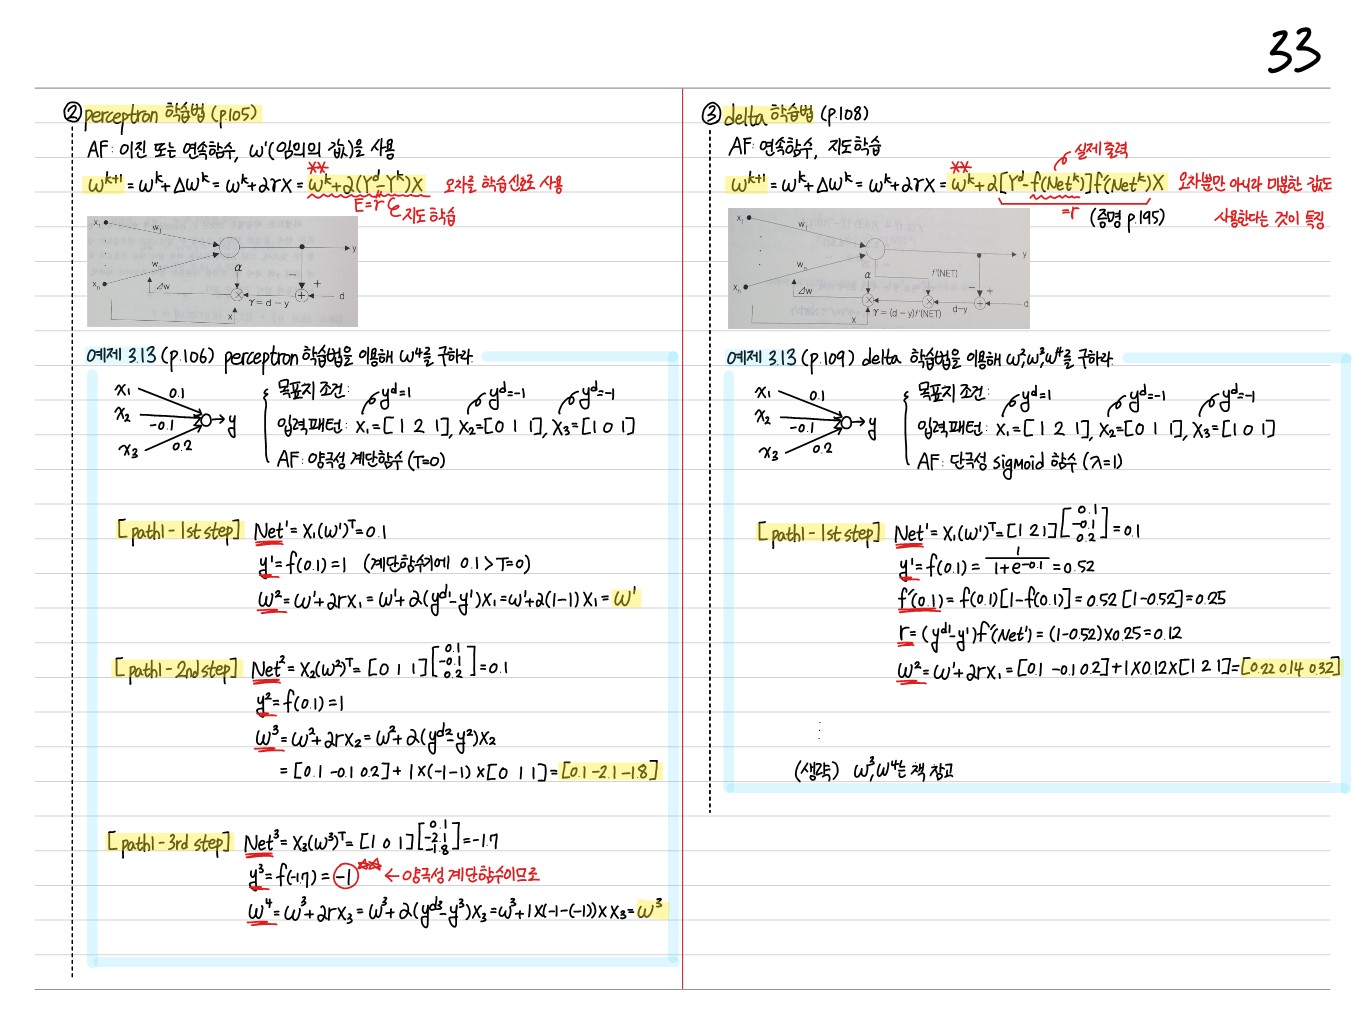 33
② perceptron 학습법 (p.105)
AF: 이진 또는 연속함수, w¹(임의의 값)을 사용
**
w^{k+1} = w^k + Δw^k = w^k + αrX = w^k + α(Y^d - Y^k)X 오차를 학습신호로 사용
E=r 지도학습
x₁ w₁ y
wₙ α
xₙ Δw − +
× γ = d − y + d
x
예제 3.13 (p.106) perceptron 학습법을 이용해 w⁴를 구하라
x₁ 0.1
x₂ -0.1 y
x₃ 0.2
목표치 조건: y^d=1 y^d=-1 y^d=-1
입력패턴: X₁=[1 2 1], X₂=[0 1 1], X₃=[1 0 1]
AF: 양극성 계단함수 (T=0)
[path1-1st step] Net¹ = X₁(w¹)^T = 0.1
y¹ = f(0.1) = 1 (계단함수기에 0.1 > T=0)
w² = w¹ + αrX₁ = w¹ + α(y^{d1} - y¹)X₁ = w¹ + α(1-1)X₁ = w¹
[path1-2nd step] Net² = X₂(w²)^T = [0 1 1] [0.1 -0.1 0.2] = 0.1
y² = f(0.1) = 1
w³ = w² + αrX₂ = w² + α(y^{d2} - y²)X₂
= [0.1 -0.1 0.2] + 1×(-1-1)×[0 1 1] = [0.1 -2.1 -1.8]
[path1-3rd step] Net³ = X₃(w³)^T = [1 0 1] [0.1 -2.1 -1.8] = -1.7
y³ = f(-1.7) = -1 ☆☆ ← 양극성 계단함수이므로
w⁴ = w³ + αrX₃ = w³ + α(y^{d3} - y³)X₃ = w³ + 1×(-1-(-1))×X₃ = w³
③ delta 학습법 (p.108)
AF: 연속함수, 지도학습
실제 출력
**
w^{k+1} = w^k + Δw^k = w^k + αrX = w^k + α[Y^d - f(Net^k)]f'(Net^k)X 오차뿐만 아니라 미분한 값도
=r (증명 p.195) 사용한다는 것이 특징
x₁ w₁ y
wₙ f'(NET)
xₙ Δw α − +
× γ = (d − y)f'(NET) × d−y + d
x
예제 3.13 (p.109) delta 학습법을 이용해 w²,w³,w⁴를 구하라
x₁ 0.1
x₂ -0.1 y
x₃ 0.2
목표치 조건: y^d=1 y^d=-1 y^d=-1
입력패턴: X₁=[1 2 1], X₂=[0 1 1], X₃=[1 0 1]
AF: 단극성 sigmoid 함수 (λ=1)
[path1-1st step] Net¹ = X₁(w¹)^T = [1 2 1] [0.1 -0.1 0.2] = 0.1
y¹ = f(0.1) = 1/(1+e^{-0.1}) = 0.52
f'(0.1) = f(0.1)[1-f(0.1)] = 0.52[1-0.52] = 0.25
r = (y^{d1} - y¹)f'(Net¹) = (1-0.52)×0.25 = 0.12
w² = w¹ + αrX₁ = [0.1 -0.1 0.2] + 1×0.12×[1 2 1] = [0.22 0.14 0.32]
⋮
(생략) w³,w⁴는 책 참고